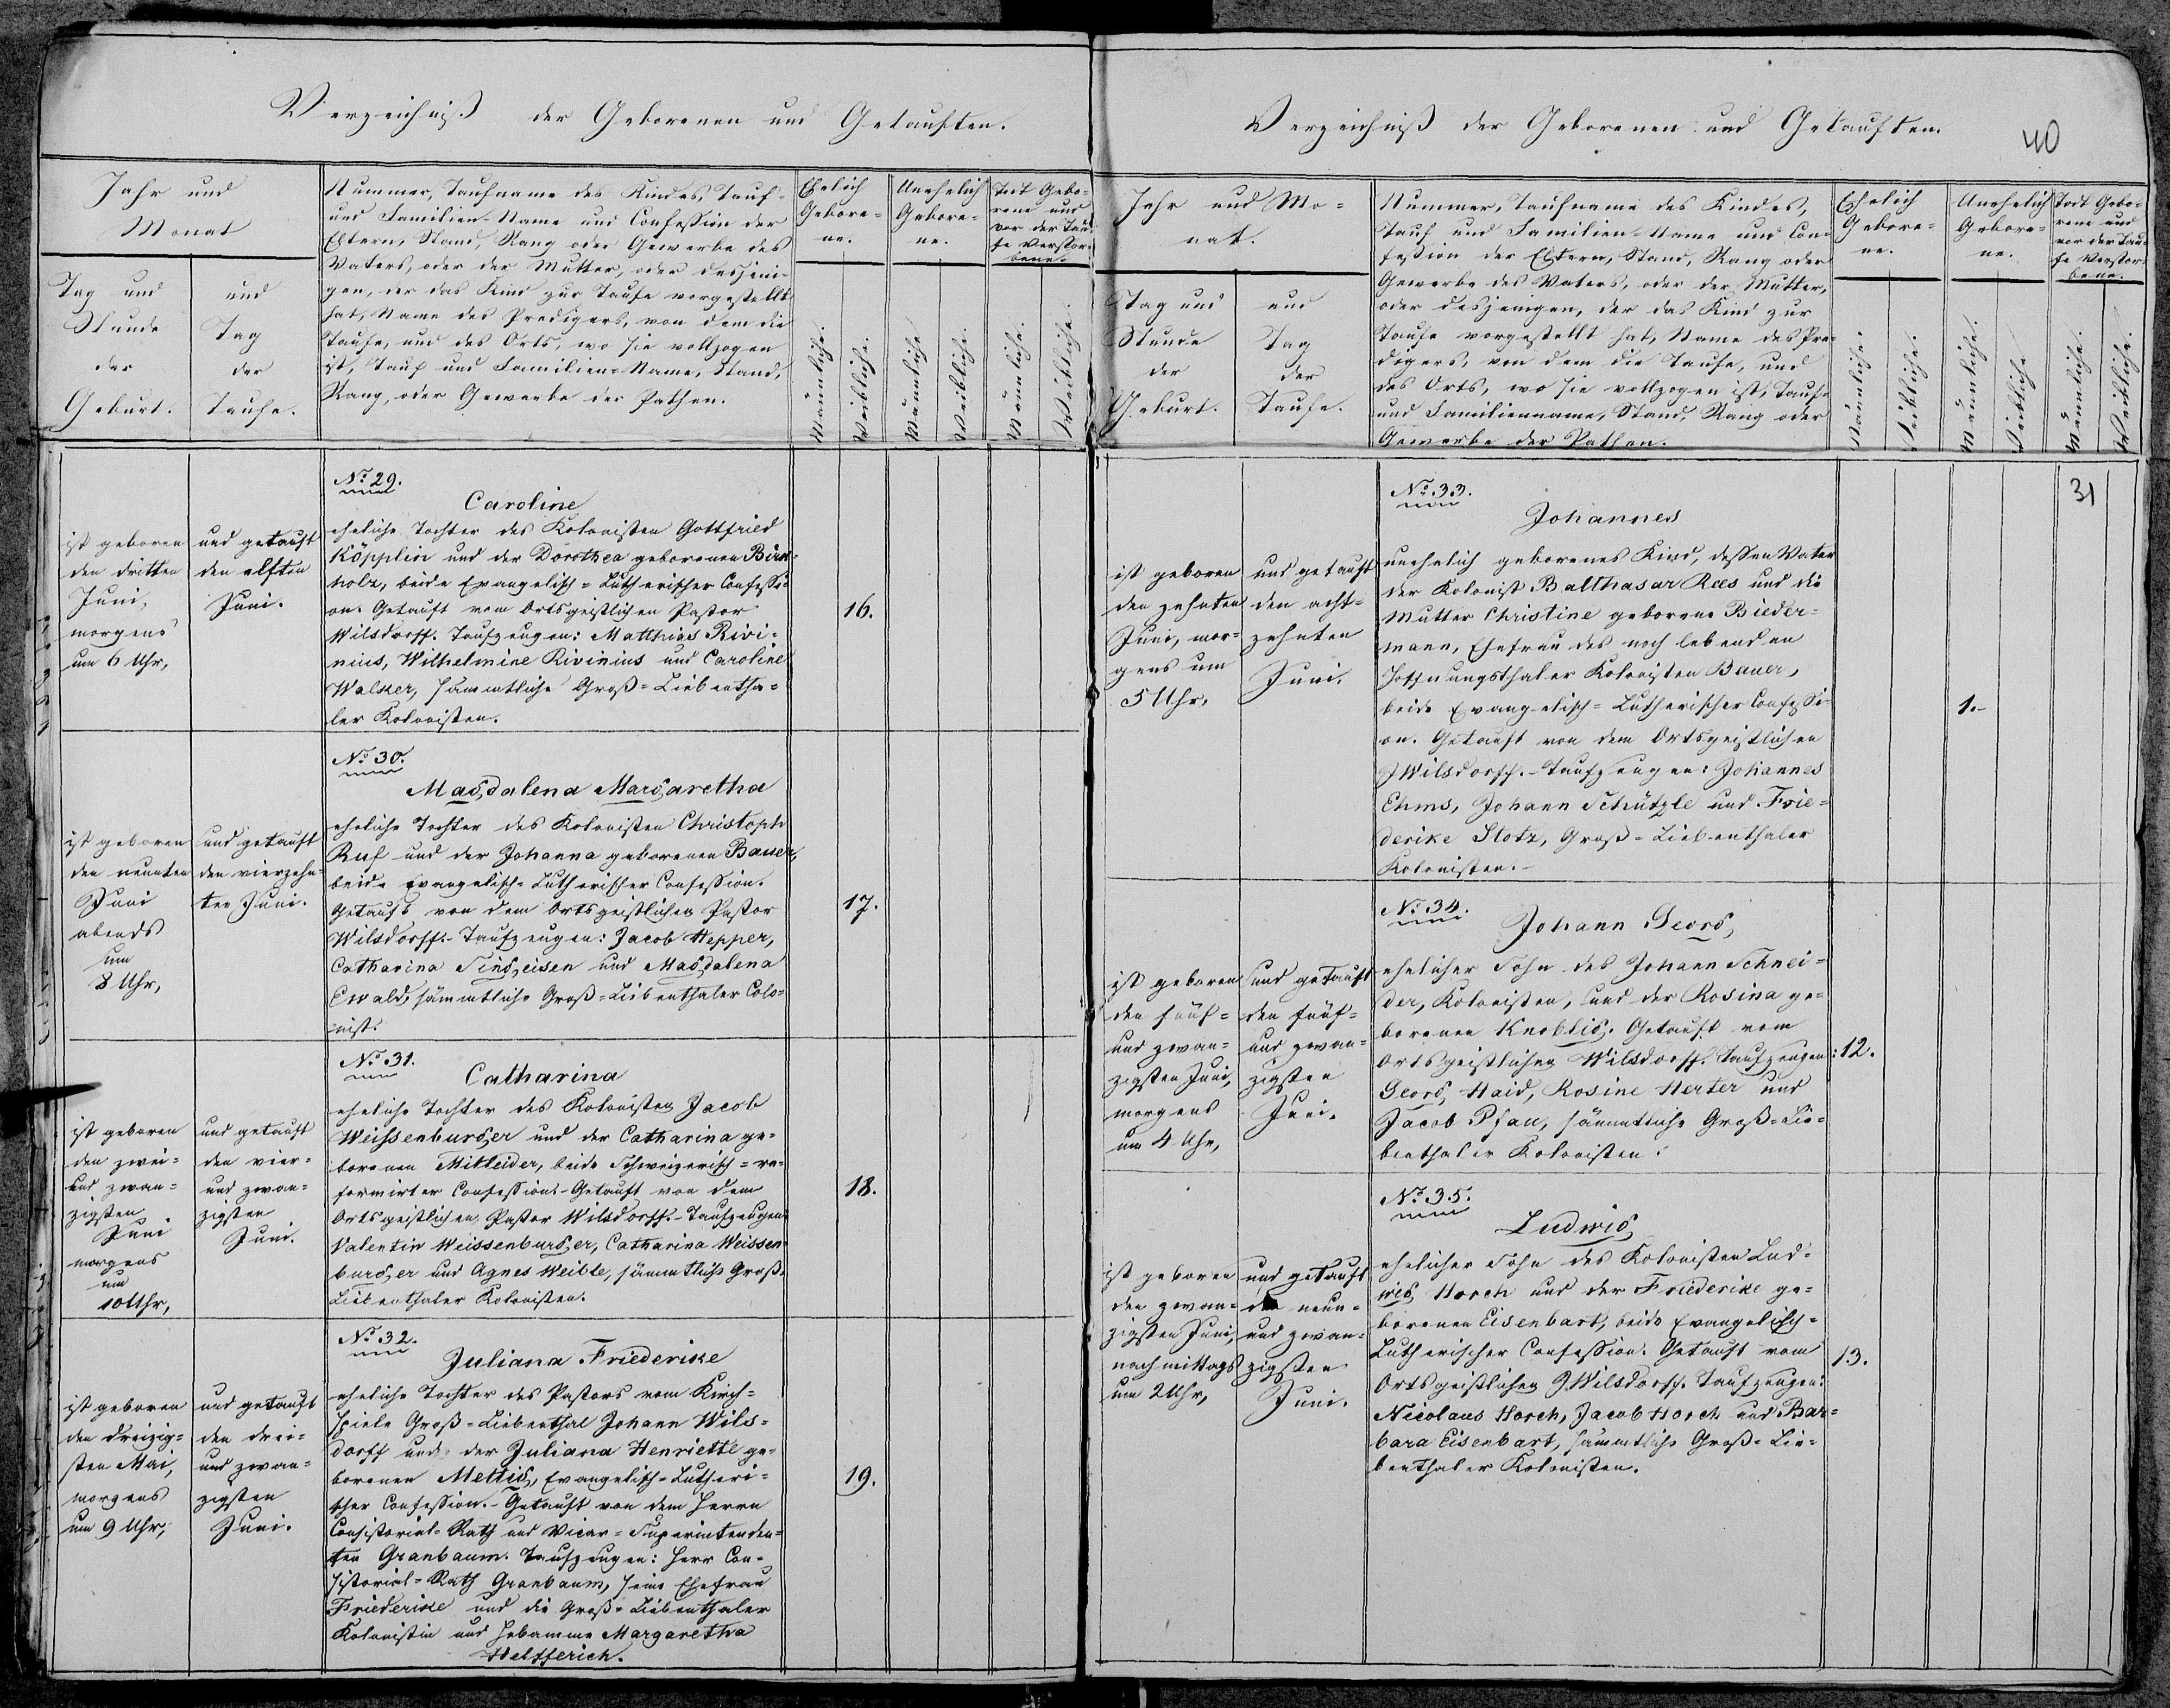 Verzeichniß der Geborenen und Getauften.
Jahr und
Monat
Tag und
Stunde
der
Geburt.
und
Tag
der
Taufe.
Nummer, Taufname des Kindes, Tauf-
und Familien-Name und Confession der
Eltern, Stand, Rang oder Gewerbe des
Vaters, oder der Mutter, oder desjeni-
gen, der das Kind zur Taufe vorgestellt
hat, Name des Predigers, von dem die
Taufe, und des Orts, wo sie vollzogen
ist, Tauf und Familien-Name, Stand,
Rang, oder Gewerbe der Pathen.
Ehelich
Gebore-
ne.
Unehelich
Gebore-
ne.
Todt Gebo-
rene und
vor der Tau-
fe Verstor-
bene.
Männliche.
Weibliche.
Männliche
Weibliche.
Männliche.
Weibliche.
ist geboren
den dritten
Juni,
morgens
um 6 Uhr,
und getauft
den elften
Juni.
No. 29.
Caroline
eheliche Tochter des Kolonisten Gottfried
Köpplin und der Dorothea geborenen Birk-
holz, beide Evangelisch-Lutherischer Confessi-
on. Getauft vom Ortsgeistlichen Pastor
Wilsdorff. Taufzeugen: Matthias Rivi-
nius, Wilhelmine Rivinius und Caroline
Walker, sämmtliche Groß-Liebentha-
ler Kolonisten.
16.
ist geboren
den neunten
Juni
abends
um
8 Uhr,
und getauft
den vierzehn-
ten Juni.
No. 30.
Magdalena Margaretha
eheliche Tochter des Kolonisten Christoph
Ruf und der Johanna geborenen Bauer,
beide Evangelisch-Lutherischer Confession.
Getauft von dem Ortsgeistlichen Pastor
Wilsdorff.- Taufzeugen: Jacob Hepper,
Catharina Singeisen und Magdalena
Ewald, sämmtliche Groß-Liebenthaler Colo-
nist.
17.
ist geboren
den zwei-
und zwan-
zigsten
Juni
morgens
um
10 Uhr,
und getauft
den vier-
und zwan-
zigsten
Juni.
No. 31.
Catharina
eheliche Tochter des Kolonisten Jacob
Weissenburger und der Catharina ge-
borenen Mitleider, beide Schweizerisch-re-
formirter Confession.- Getauft von dem
Ortsgeistlichen Pastor Wilsdorff.- Taufzeugen:
Valentin Weissenburger, Catharina Weissen-
burger und Agnes Weible, sämmtliche Groß-
Liebenthaler Kolonisten.
18.
ist geboren
den dreizig-
sten Mai,
morgens
um 9 Uhr,
und getauft
den drei-
und zwan-
zigsten
Juni.
No. 32.
Juliana Friederike
eheliche Tochter des Pastors vom Kirch-
spiele Groß-Liebenthal Johann Wils-
dorff und der Juliana Henriette ge-
borenen Mettig, Evangelisch-Lutheri-
scher Confession.- Getauft von dem Herrn
Consistorial-Rath und Vicar-Superintenden-
ten Granbaum. Taufzeugen: Herr Con-
sistorial-Rath Granbaum, seine Ehefrau
Friederike und die Groß-Liebenthaler
Kolonistin und Hebamme Margaretha
Helfferich.
19.
Verzeichniß der Geborenen und Getauften.
40
Jahr und Mo-
nat.
Tag und
Stunde
der
Geburt.
und
Tag
der
Taufe.
Nummer, Taufname des Kindes,
Tauf und Familien-Name und Con-
fession der Eltern, Stand, Rang oder
Gewerbe des Vaters, oder der Mutter,
oder desjenigen, der das Kind zur
Taufe vorgestellt hat, Name des Pre-
digers, von dem die Taufe, und
des Orts, wo sie vollzogen ist, Tauf-
und Familienname, Stand, Rang oder
Gewerbe der Pathen.
Ehelich
Gebore-
ne.
Unehelich
Gebore-
ne.
Todt Gebo-
rene und
vor der Tau-
fe Verstor-
bene.
Männliche.
Weibliche.
Männliche.
Weibliche
Männliche.
Weibliche.
31
ist geboren
den zehnten
Juni, mor-
gens um
5 Uhr,
und getauft
den acht-
zehnten
Juni.
No. 33.
Johannes
unehelich geborenes Kind, dessen Vater
der Kolonist Balthasar Rees und die
Mutter Christine geborene Bieder-
mann, Ehefrau des noch lebenden
Hoffnungsthaler Kolonisten Bauer,
beide Evangelisch-Lutherischer Confessi-
on. Getauft von dem Ortsgeistlichen
J Wilsdorff.- Taufzeugen: Johannes
Ehms, Johann Schützle und Frie-
derike Stotz, Groß-Liebenthaler
Kolonisten.-
1.-
ist geboren
den fünf-
und zwan-
zigsten Juni,
morgens
um 4 Uhr,
und getauft
den fünf-
und zwan-
zigsten
Juni.
No. 34.
Johann Georg,
ehelicher Sohn des Johann Schnei-
der, Kolonisten, und der Rosina ge-
borenen Knoblig. Getauft vom
Ortsgeistlichen Wilsdorff. Taufzeugen:
Georg Haid, Rosine Herter und
Jacob Pfau, sämmtliche Groß-Lie-
benthaler Kolonisten.
12.
ist geboren
den zwan-
zigsten Juni,
nachmittags
um 2 Uhr,
und getauft
den neun-
und zwan-
zigsten
Juni.
No. 35.
Ludwig
ehelicher Sohn des Kolonisten Lud-
wig Horch und der Friederike ge-
borenen Eisenbart, beide Evangelisch-
Lutherischer Confession. Getauft vom
Ortsgeistlichen J. Wilsdorff. Taufzeugen:
Nicolaus Horch, Jacob Horch und Bar-
bara Eisenbart, sämmtliche Groß-Lie-
benthaler Kolonisten.
13.